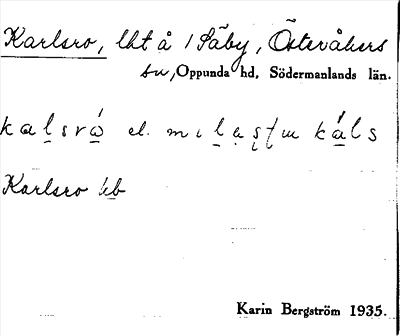 Karlsro, lht å 1 Säby, Österåkers
sn, Oppunda hd, Södermanlands län.
kalsrò el. káls
Karlsro kb
Karin Bergström 1935.